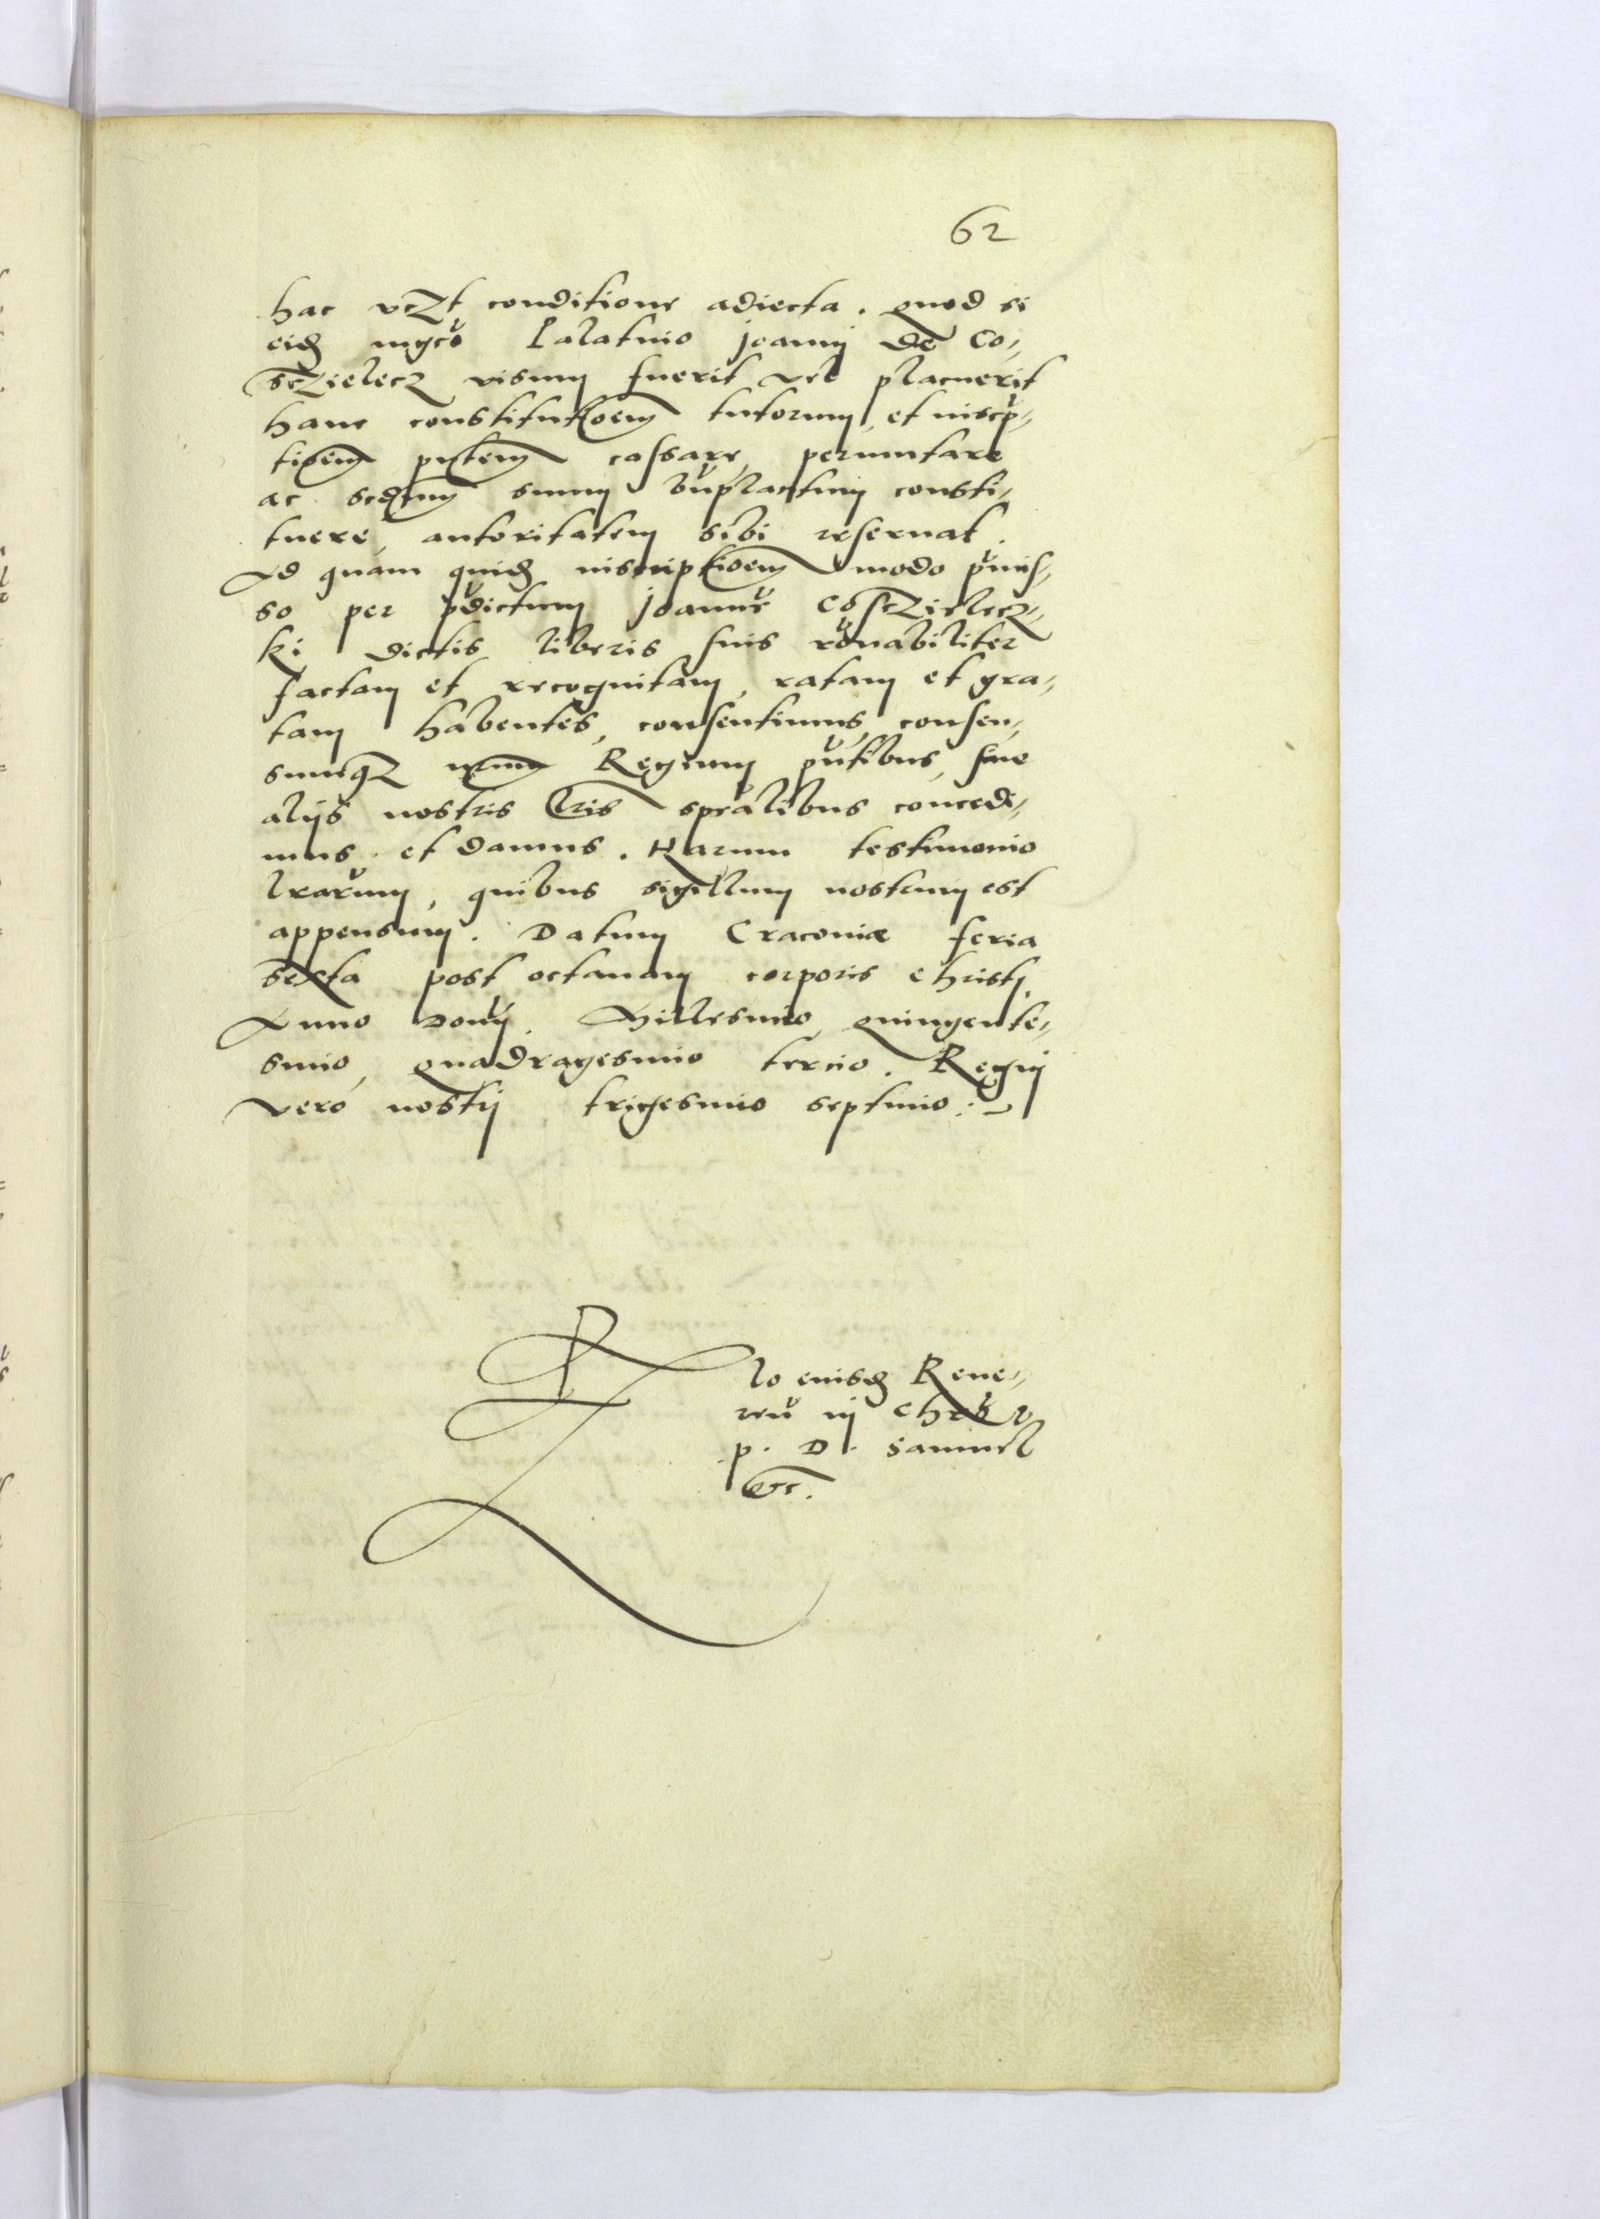 62
hac vczt conditione adiecta. quod si
eidē mgco Palatino joanni de Co-
sczielecz visum fuerit vel placuerit
hanc constitutōem tutorum, et inscrp-
tiōem pntem cassare, permutare
ac scdum suum bnplacitum consti-
tuere, autoritatem sibi reservat.
Ad quam quidē inscriptiōem modo pmis-
so per pdictum joannē Cosczielecz-
ki dictis liberis suis rōnabiliter
factam et recognitam, ratam et gra-
tam habentes, consentimus, consen-
sumqʒ nrum Regium pntibus, sine
alijs nostris lris spealibus concedi-
mus et damus. Harum testimonio
lrarum, quibus sigillum nostrum est
appensum. Datum Cracoviæ feria
sexta post octavam corporis christi,
Anno domj. Millesimo, quingente-
simo, quadragesimo tercio. Regni
vero nostrj trigesimo septimo :-
Rlo eiusdē Reue-
ren in chro
p. D. Samuel
etc.